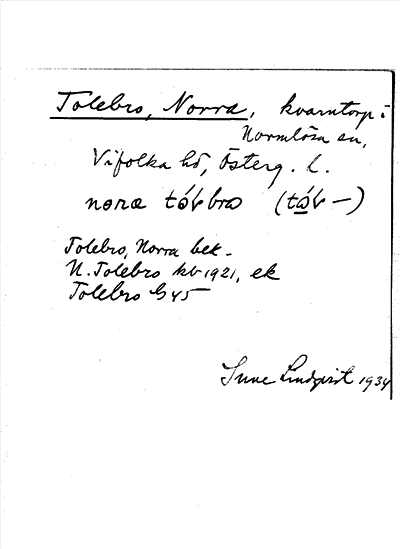 Tolebro, Norra, kvarntorp i
Normlösa sn,
Vifolka hd, Österg. l.
Tolebro, Norra bek.
N. Tolebro kb 1921, ek
Tolebro G45
Sune Lindqvist 1934